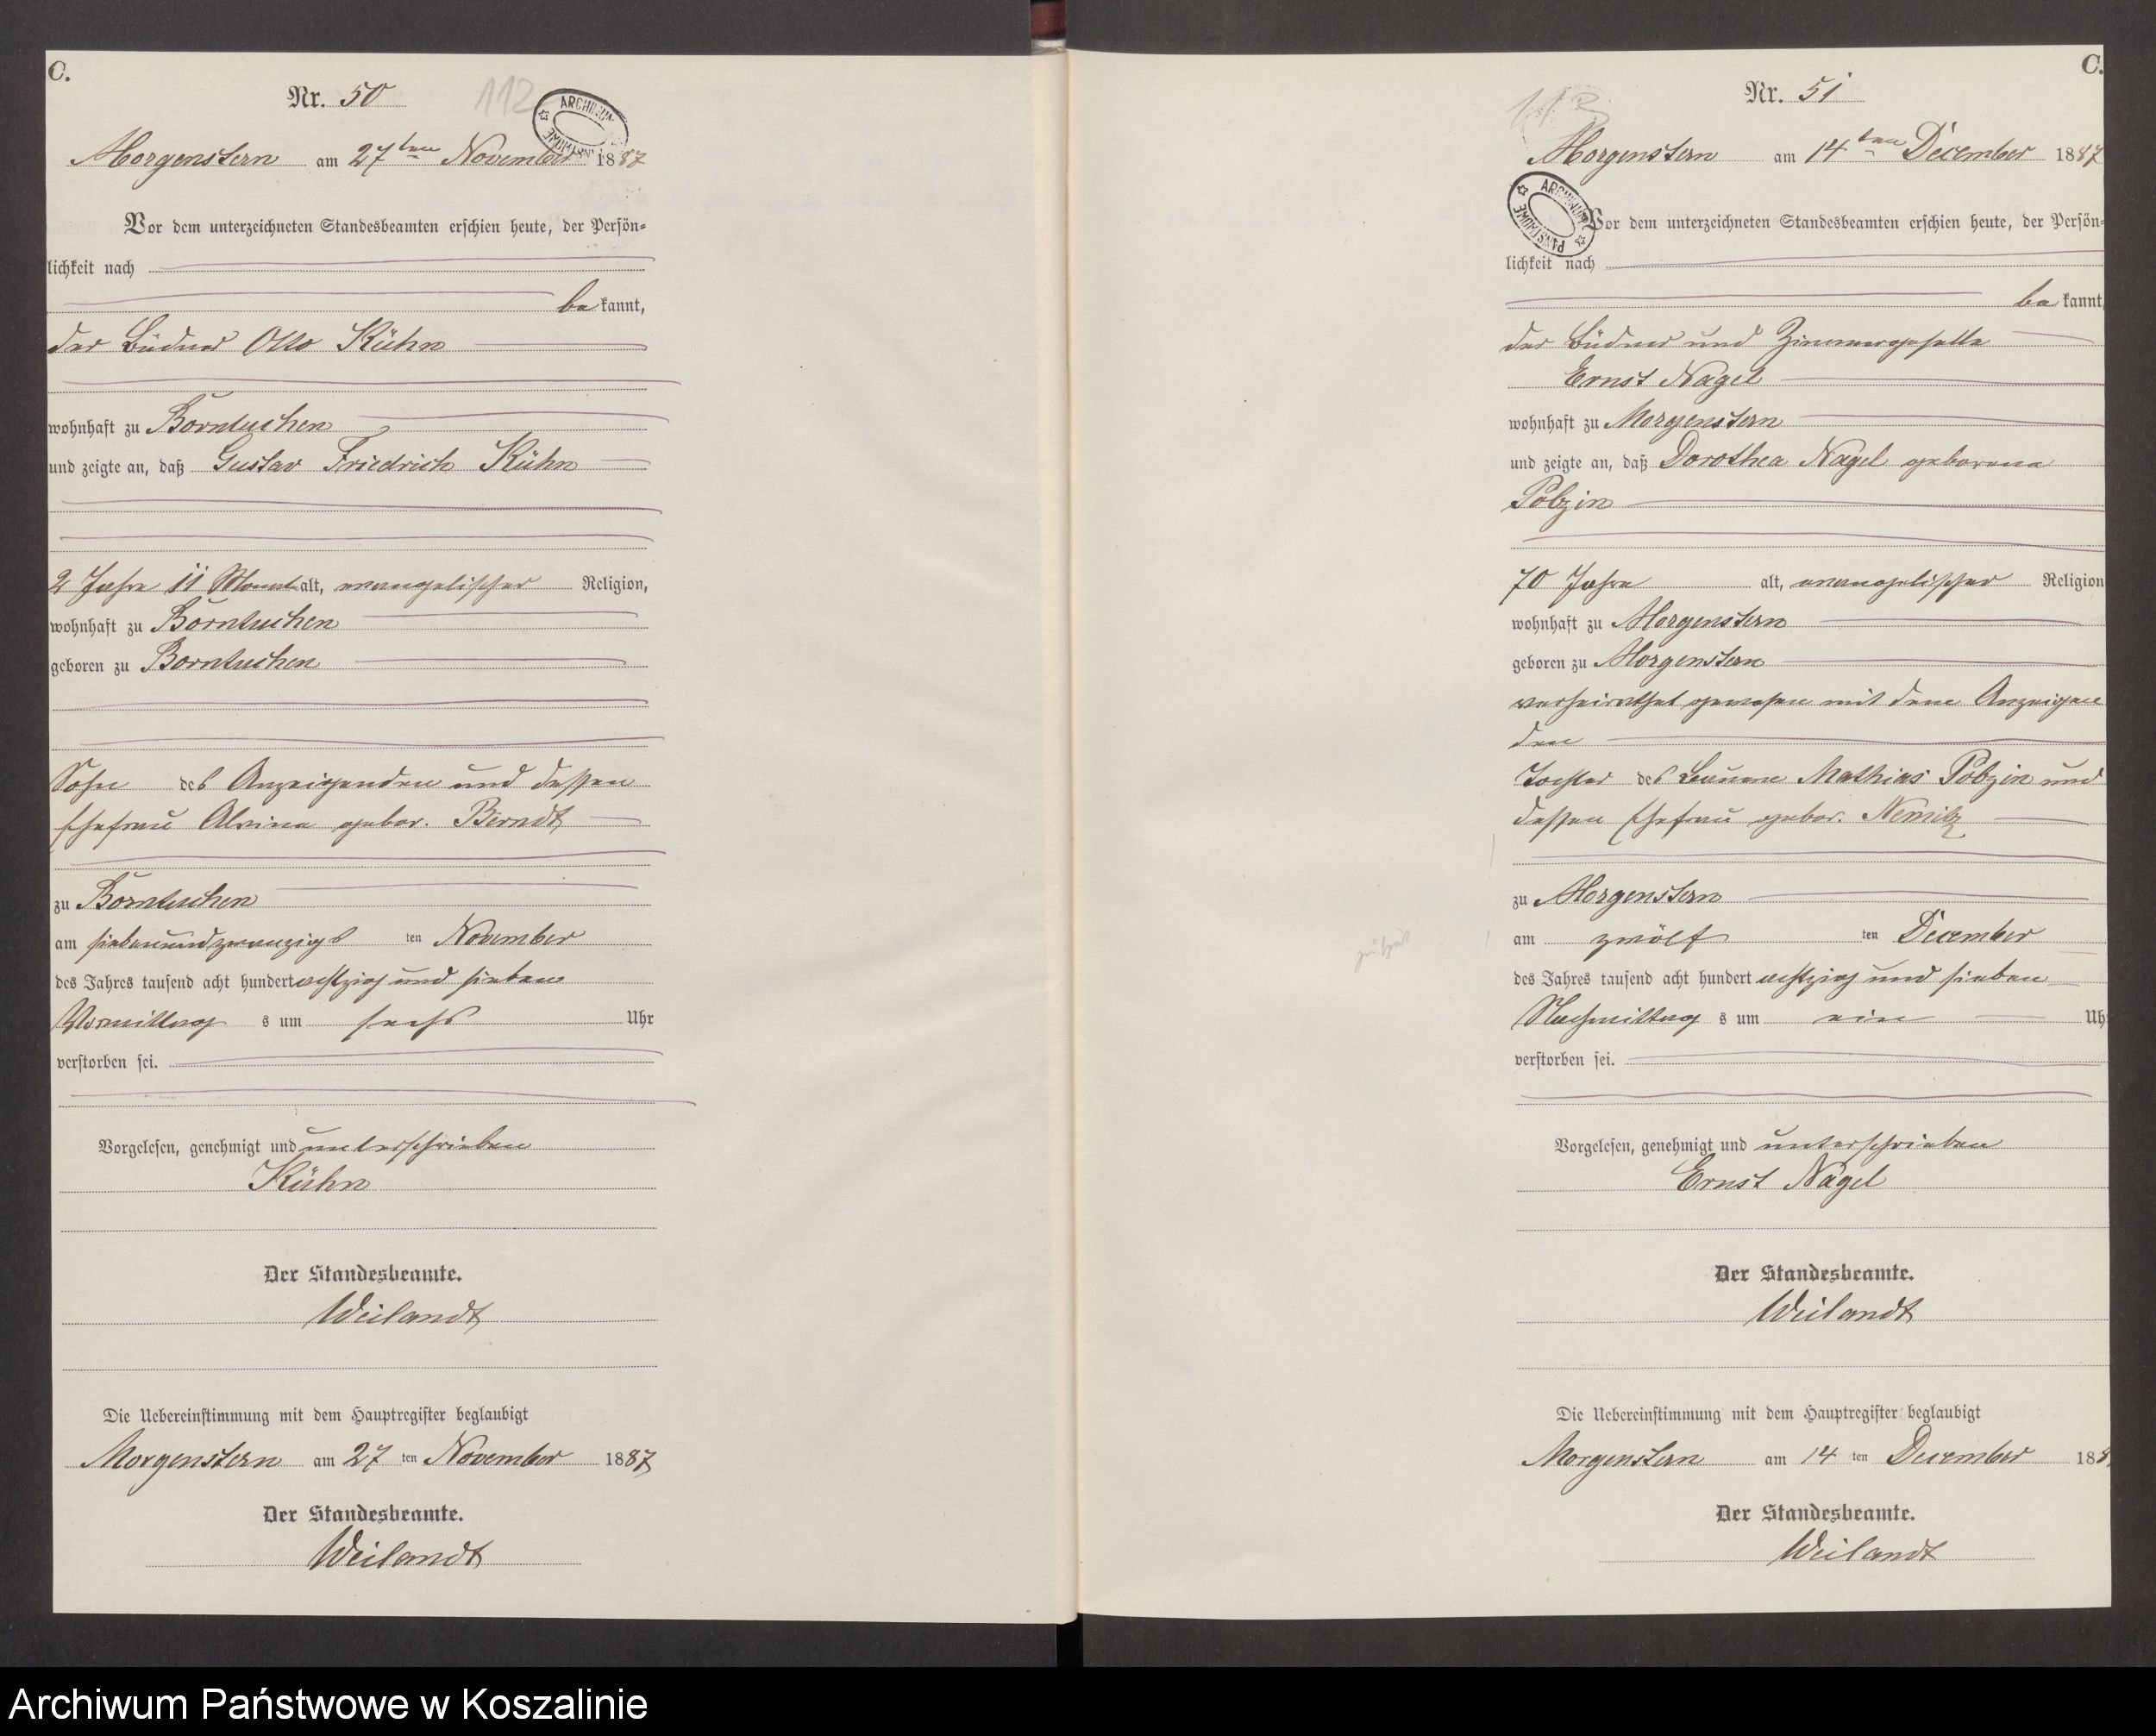 C.
Nr. 50
112
ARCHIWUM PAŃSTWOWE
Morgenstern am 27ten November 1887
Vor dem unterzeichneten Standesbeamten erschien heute, der Persön-
lichkeit nach
bekannt,
der Büdner Otto Kühn
wohnhaft zu Borntuchen
und zeigte an, daß Gustav Friedrich Kühn
2 Jahre 11 Monat alt, evangelischer Religion,
wohnhaft zu Borntuchen
geboren zu Borntuchen
Sohn des Anzeigenden und dessen
Ehefrau Alvine gebor. Berndt
zu Borntuchen
am siebenundzwanzigsten November
des Jahres tausend acht hundert achtzig und sieben
Vormittags um sechs Uhr
verstorben sei.
Vorgelesen, genehmigt und unterschrieben
Kühn
Der Standesbeamte.
Weilandt
Die Uebereinstimmung mit dem Hauptregister beglaubigt
Morgenstern am 27 ten November 1887
Der Standesbeamte.
Weilandt
C.
Nr. 51
113
Morgenstern am 14ten December 1887
ARCHIWUM PAŃSTWOWE
Vor dem unterzeichneten Standesbeamten erschien heute, der Persön-
lichkeit nach
bekannt,
der Büdner und Zimmergeselle
Ernst Nagel
wohnhaft zu Morgenstern
und zeigte an, daß Dorothea Nagel geborene
Polzin
70 Jahre alt, evangelischer Religion
wohnhaft zu Morgenstern
geboren zu Morgenstern
verheirathet gewesen mit dem Anzeigen
den
Tochter des Mathias Polzin und
dessen Ehefrau gebor. Nemitz
zu Morgenstern
am zwölf ten December
des Jahres tausend acht hundert achtzig und sieben
Nachmittags um ein Uh
verstorben sei.
Vorgelesen, genehmigt und unterschrieben
Ernst Nagel
Der Standesbeamte.
Weilandt
Die Uebereinstimmung mit dem Hauptregister beglaubigt
Morgenstern am 14 ten December 188
Der Standesbeamte.
Weilandt
Archiwum Państwowe w Koszalinie